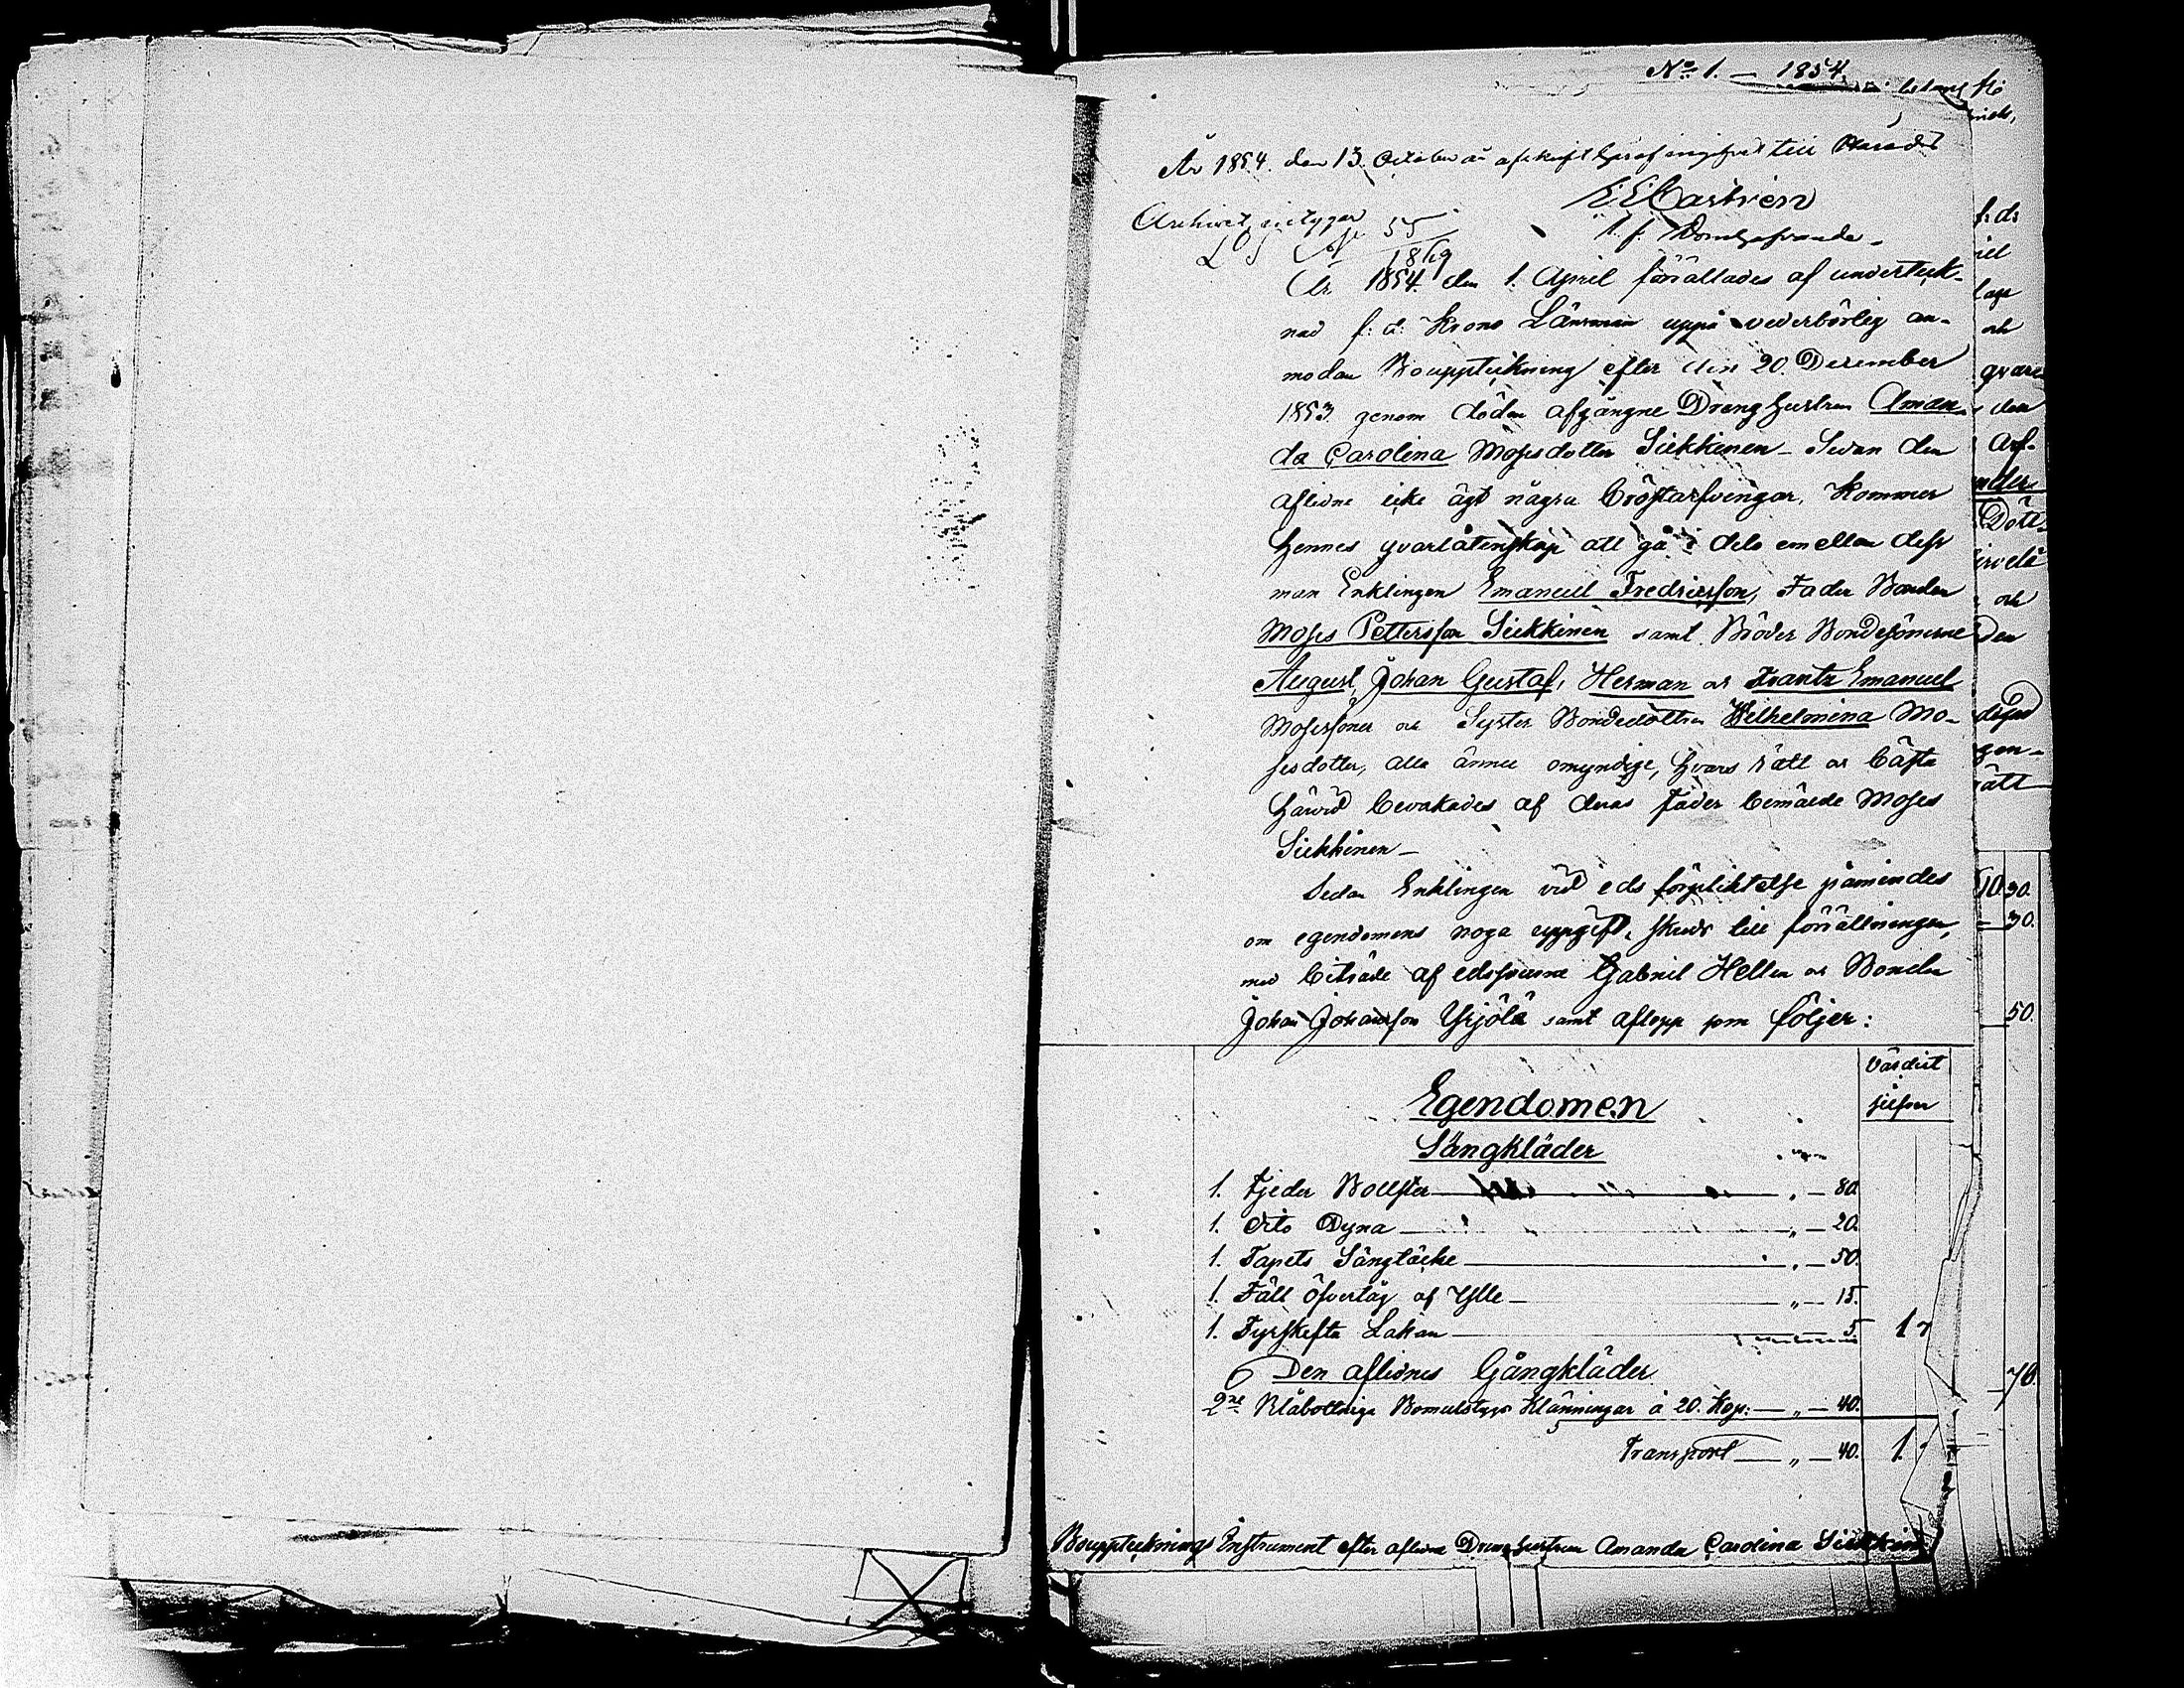 No 1. — 1854.
År 1854. den 13. October är afskrift häraf ingifvit till Härads
Archivet, intygar
E E Castrén
t. f. Domhafvande.
55
1869
År 1854. den 1. April förrättades af underteck-
nad f: d: Krono Länsman uppå vederbörlig an-
modan Bouppteckning efter den 20 December
1853 genom döden afgångne Dreng hustrun Aman-
da Carolina Mosisdotter Siekkinen – Sedan den
aflidne icke ägt några bröstarfvingar, kommer
hennes qvarlåtenskap att gå i dels emellan dess
man Enklingen Emanuel Fredricsson, Fader Bonden
Moses Pettersson Siekkinen samt Bröder Bondesönerne
August, Johan Gustaf, Herman och Frantz Emanuel
Mosissöner och Syster Bondedottren Wilhelmina Mo-
sisdotter, alla ännu omyndige, hvars rätt och bästa
härvid bevakades af deras fader bemälde Moses
Siekkinen –
Sedan Enklingen vid eds förpliktelse påmindes
om egendomens noga uppgift, skreds till förrättningen,
med biträde af edsvurne Gabriel Hellen och Bonden
Johan Johansson Yrjölä samt aflopp som följer:
Värdet
silfver
Egendomen
Sängkläder
1. Fjeder Bolster — „ — 80.
1. dito Dyna — „ — 20.
1. Tapets Sängtäcke — „ — 50.
1. Fäll öfvertåg af Ylle — „ — 15.
1. Fyrskefta Lakan — 5 1 7
Den aflidnes Gångkläder
2ne Blåbottniga Bomulstygs Klänningar à 20. Kop: — „ — 40.
Transport — „ — 40. 1.
Bouppteckings Instrument efter aflidna Dreng hustrun Amanda Carolina Siekkin
f: d:
och
qvar
den
Arf-
Dott
och
Den
gen-
rätt
10 30.
— 30.
50.
70.